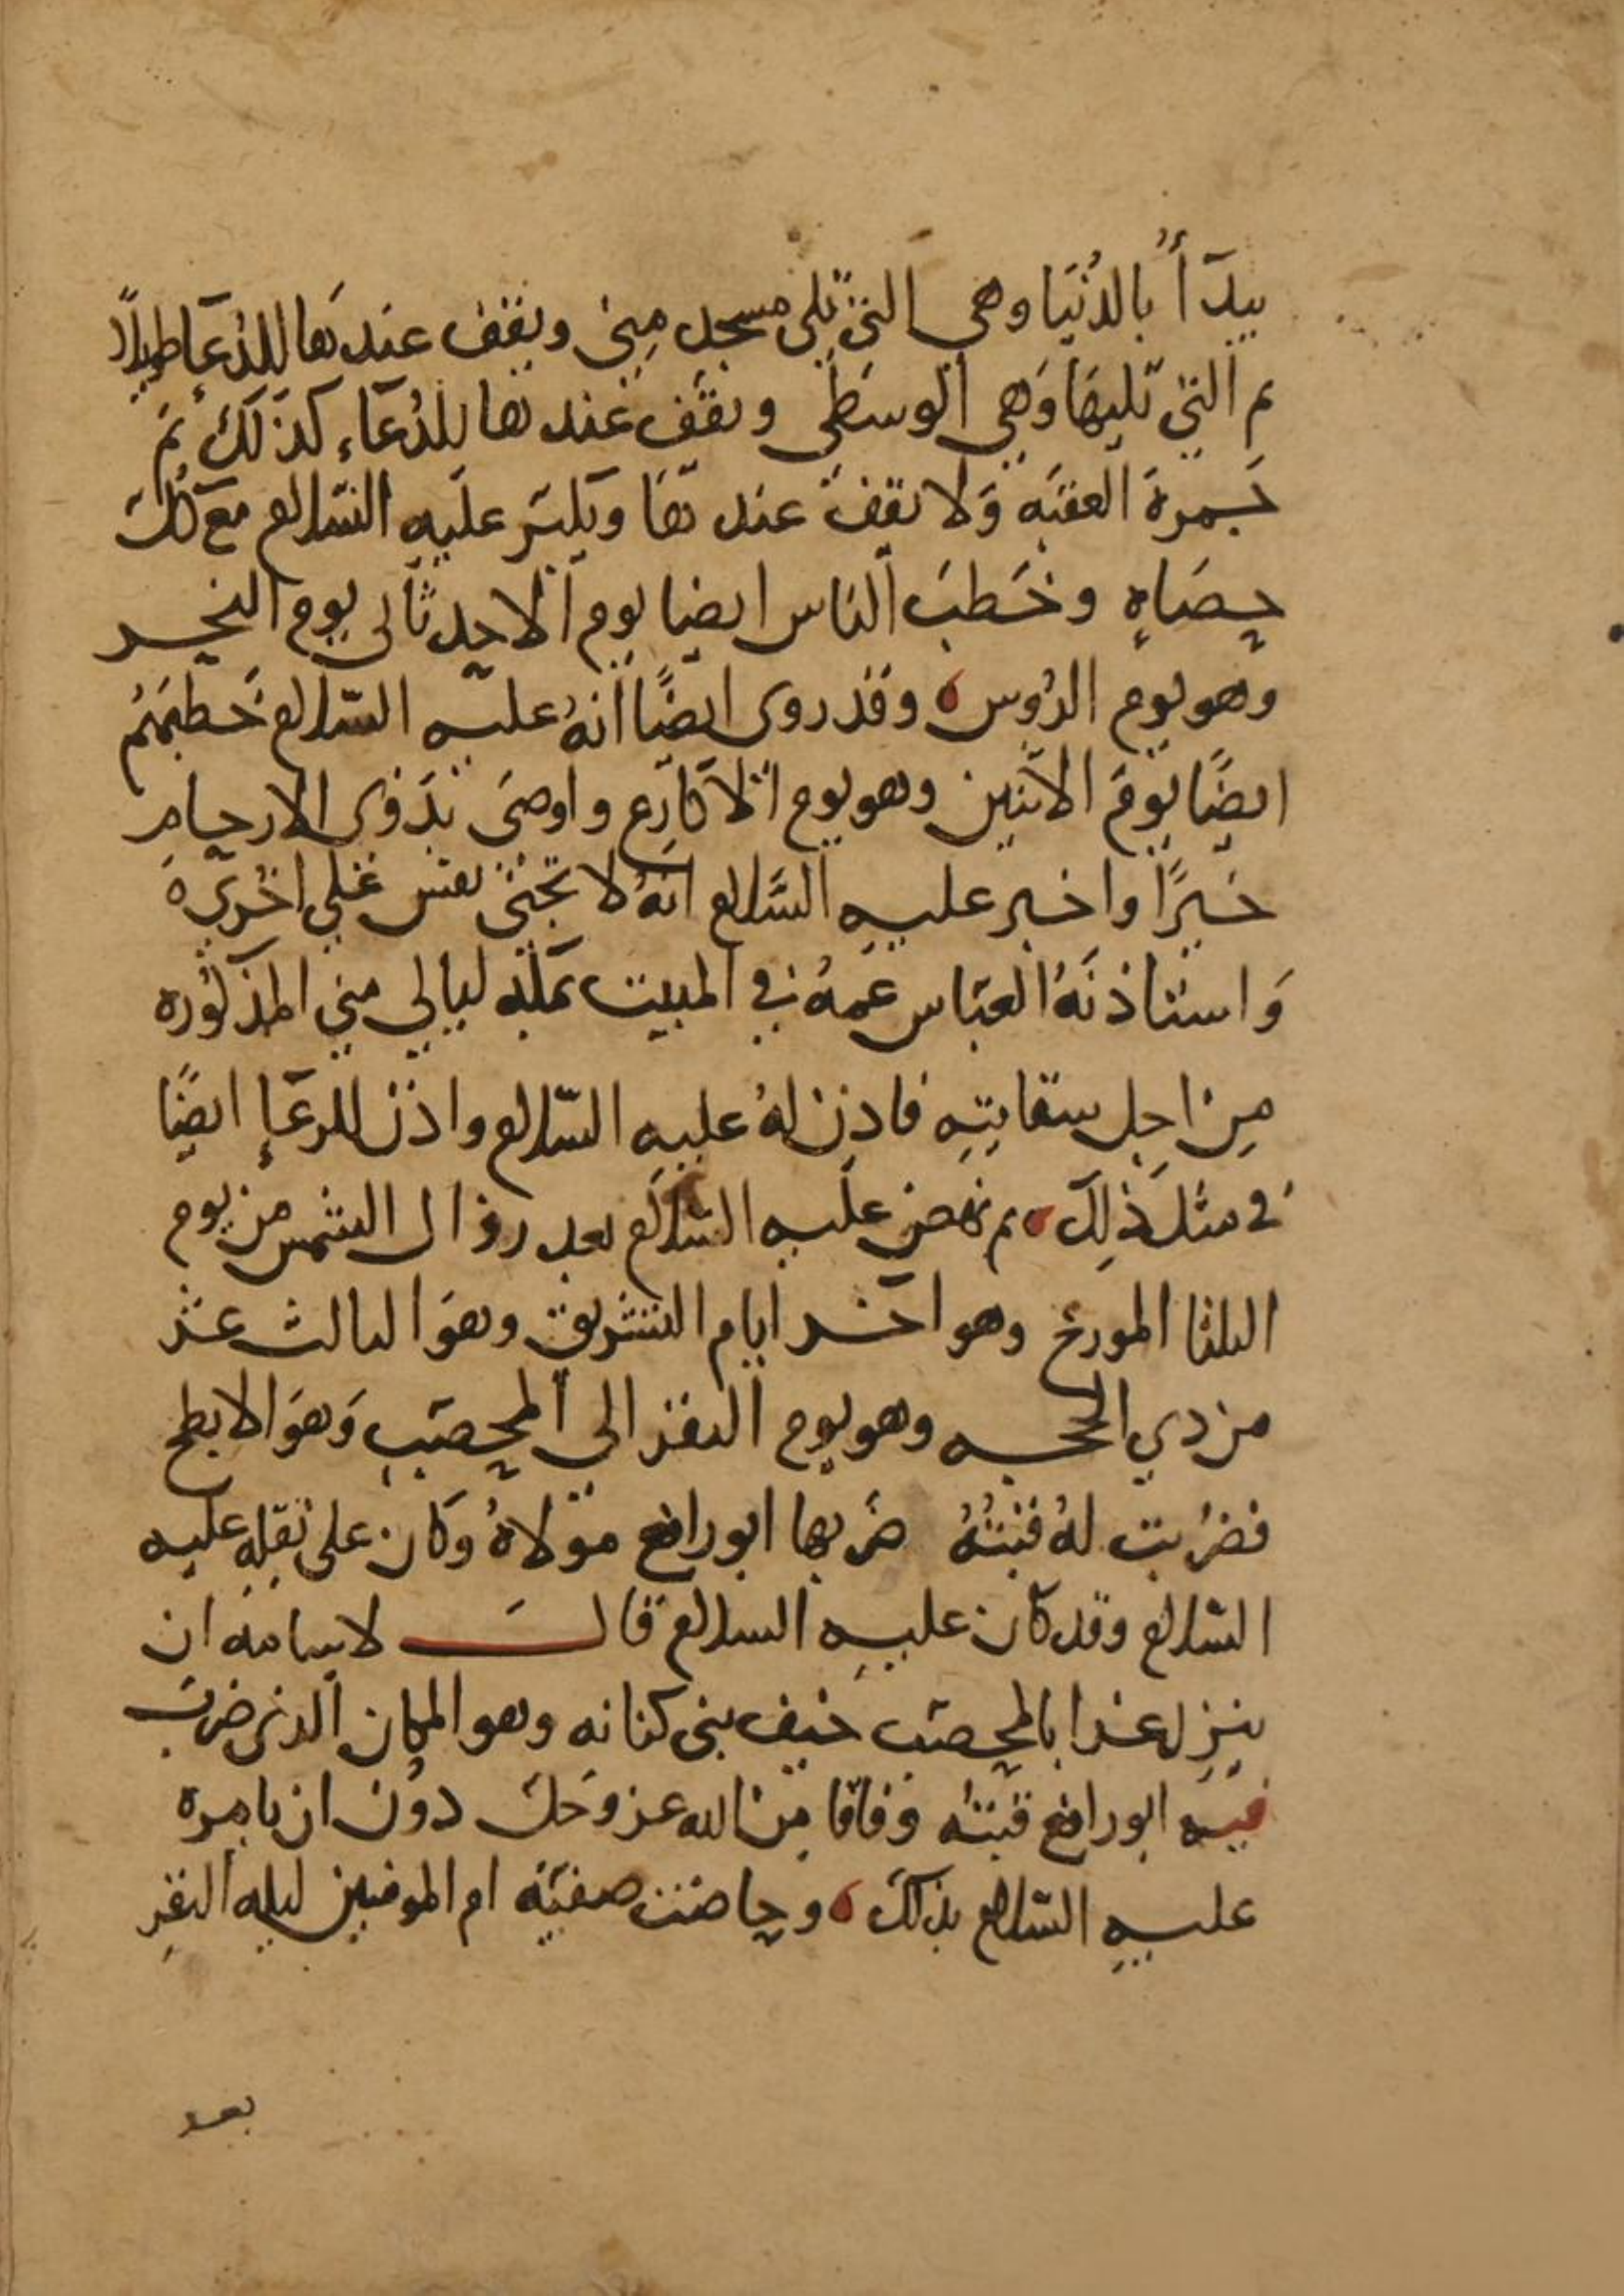 يبدأ بالدُنيَا وهي التي تلي مسجد مِنى ويقف عندها للدُعَاء طويلاً
ثم التي تليهَا وَهي الوسطى ويقف عندها للدُعَاء كذلك ثم
جَمرة العقبَه وَلا يقف عندهَا ويكبّر عليه السّلام مَع كل
حصَاةٍ وخَطبَ الناس ايضا يوم الاحد ثاني يوم النحر
وهو يوم الرُوس ه وقد روى ايضًا انهُ عليه السّلام خَطبَهُم
ايضًا يَومَ الاثنين وهو يوم الاكارع واوصَى بذوى الارحام
خيرًا واخبر عليه السَّلام انهُ لا تجنى نفس على اخرى ه
وَاستاذنَهُ العبّاس عَمهُ في المبيت بمكه ليالي منى المذكوره
مِن اجل سقايتِه فاذِن لهُ عليه السّلام واذن للرعَاءِ ايضًا
في مثل ذلِكَ ه ثم نهض عليه السّلام بعد زوال الشمس من يوم
الثلثا المورخ وهو آخر ايام التشريق وهوَ الثالث عشر
من ذي الحجه وهو يوم النفر الى المحصّب وَهوَ الابطح
فضُربت لهُ قبتهُ ضرَبها ابو رافع مولاهُ وكان على ثقلِه عليه
السّلام وقد كان عليه السلام قال لاسامه ان
ينزل غدا بالمحصّب خيف بني كنانه وهو المكان الذى ضرب
فيه ابو رافع قبته وَفاقا مِن الله عز وَجل دوُن ان يامره
عليه السّلام بذلكَ ه وحاضت صفيّه ام المومنين ليله النفرِ
بعد